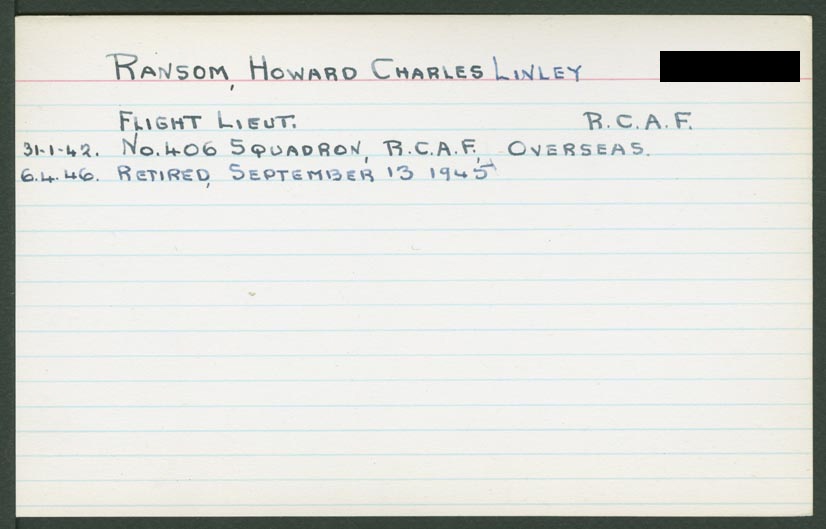 RANSOM, HOWARD CHARLES LINLEY
FLIGHT LIEUT. R.C.A.F.
31-1-42. NO.406 SQUADRON, R.C.A.F., OVERSEAS.
6.4.46. RETIRED, SEPTEMBER 13 1945